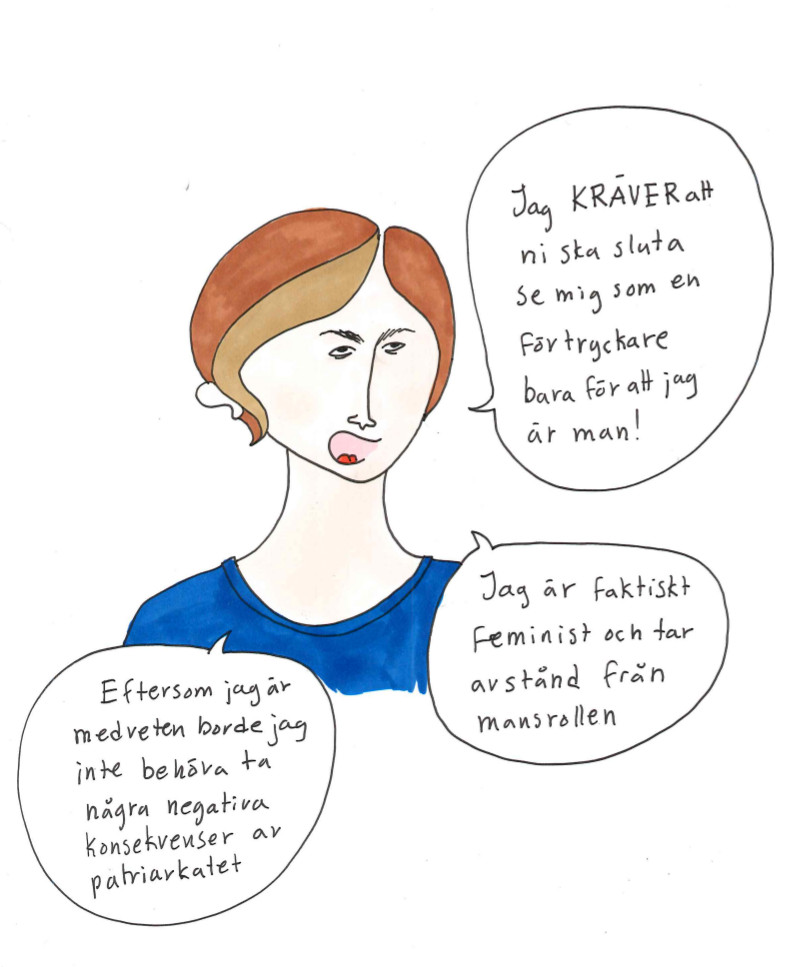 Jag KRÄVER att
ni ska sluta
se mig som en
förtryckare
bara för att jag
är man!
Jag är faktiskt
feminist och tar
avstånd från
mansrollen
Eftersom jag är
medveten borde jag
inte behöva ta
några negativa
konsekvenser av
patriarkatet